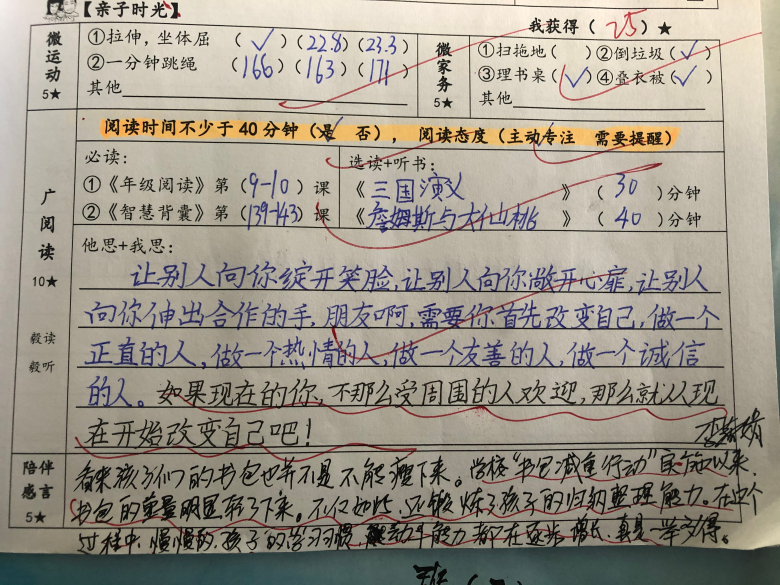 【亲子时光】 我获得(25)★
微运动 5★ ①拉伸，坐体屈 (✓)(22.8)(23.3)
②一分钟跳绳 (166)(163)(171)
其他
微家务 5★ ①扫拖地( ) ②倒垃圾(✓)
③理书桌(✓) ④叠衣被(✓)
其他
阅读时间不少于40分钟(是 否)，阅读态度(主动专注 需要提醒)
广阅读 10★ 毅读 毅听
必读：
①《年级阅读》第(9-10)课
②《智慧背囊》第(139-143)课
选读+听书：
《三国演义》(30)分钟
《詹姆斯与大仙桃》(40)分钟
他思+我思：
让别人向你绽开笑脸,让别人向你敞开心扉,让别人
向你伸出合作的手,朋友啊,需要你首先改变自己,做一个
正直的人,做一个热情的人,做一个友善的人,做一个诚信
的人。如果现在的你,不那么受周围的人欢迎,那么就从现
在开始改变自己吧!
陪伴感言 5★
看来孩子们的书包也并不是不能瘦下来。学校“书包减重行动”实施以来,
书包的重量明显轻了下来。不仅如此,还锻炼了孩子的归纳整理能力。在这个
过程中,慢慢的,孩子的学习习惯,动手能力都在逐步增长,真是一举多得。
班(二)